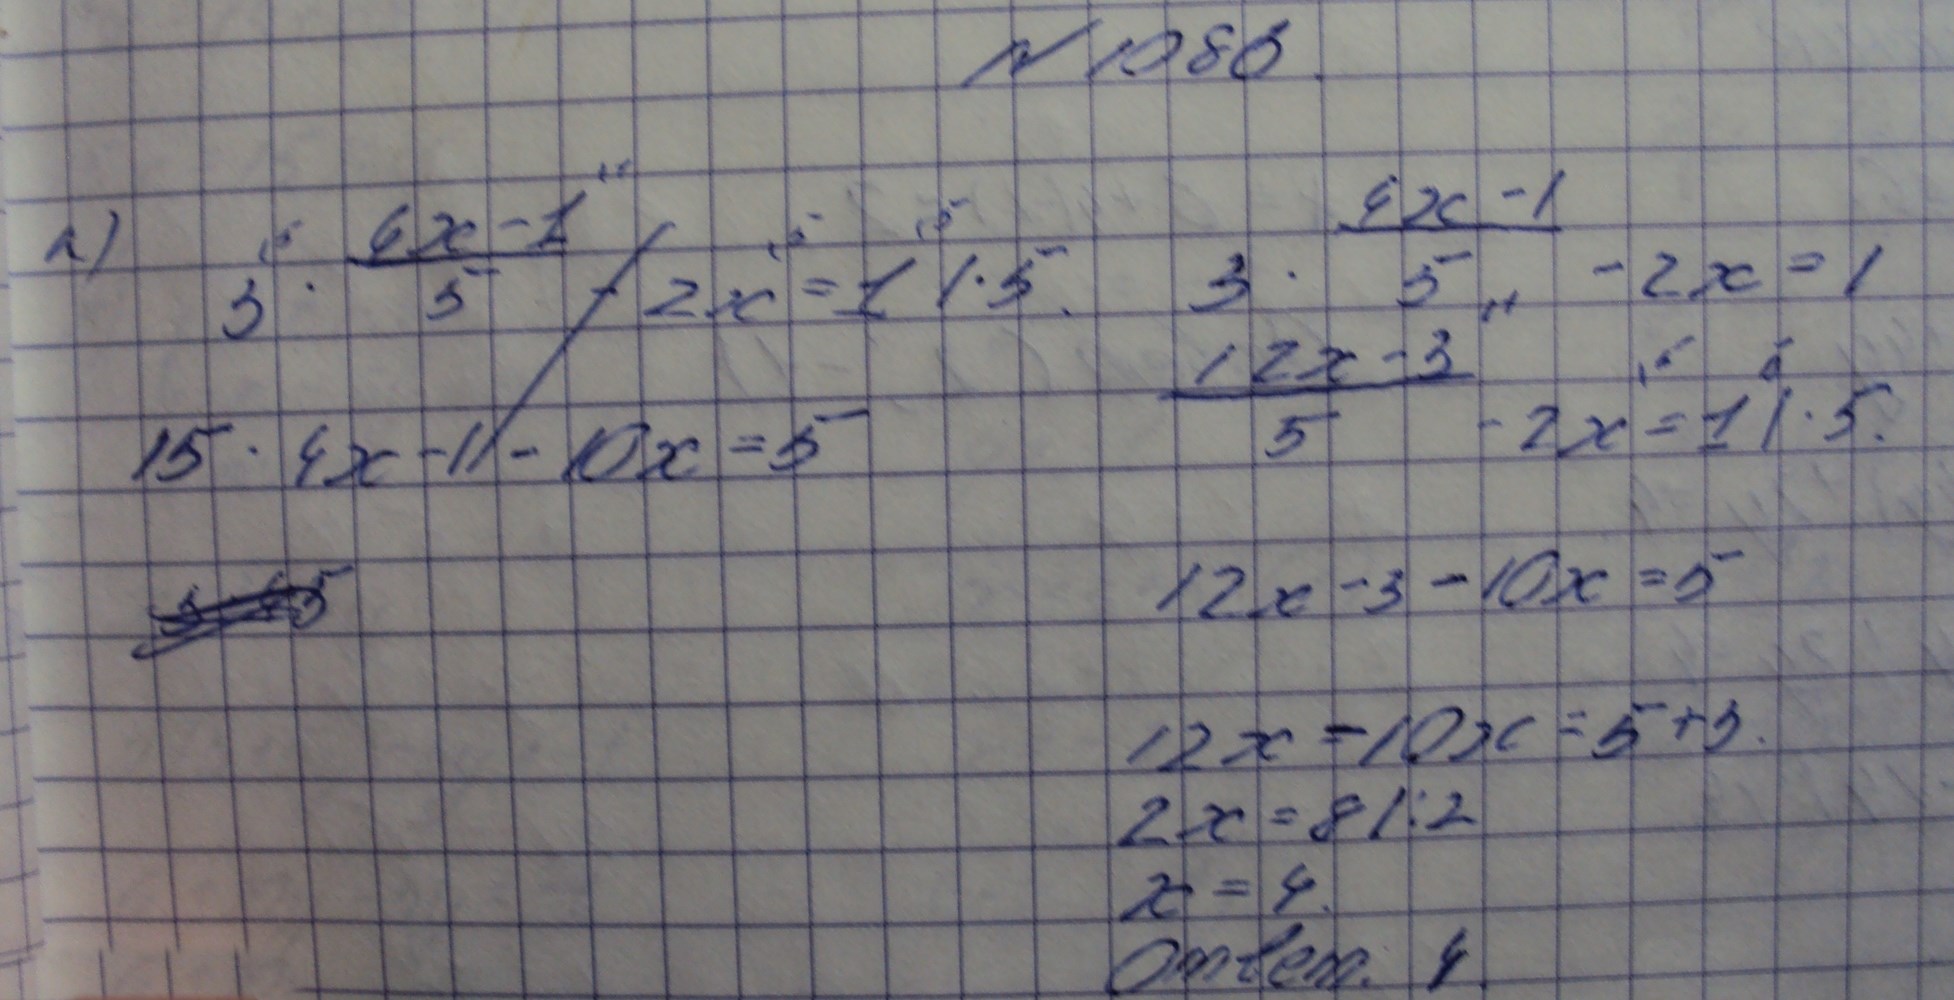 № 1086.
а) 3 · (4x - 1)/5 - 2x = 1 | · 5.
15 · 4x - 1 - 10x = 5
3 · (4x - 1)/5 - 2x = 1
(12x - 3)/5 - 2x = 1 | · 5.
12x - 3 - 10x = 5
12x - 10x = 5 + 3.
2x = 8 | : 2
x = 4.
Ответ. 4.